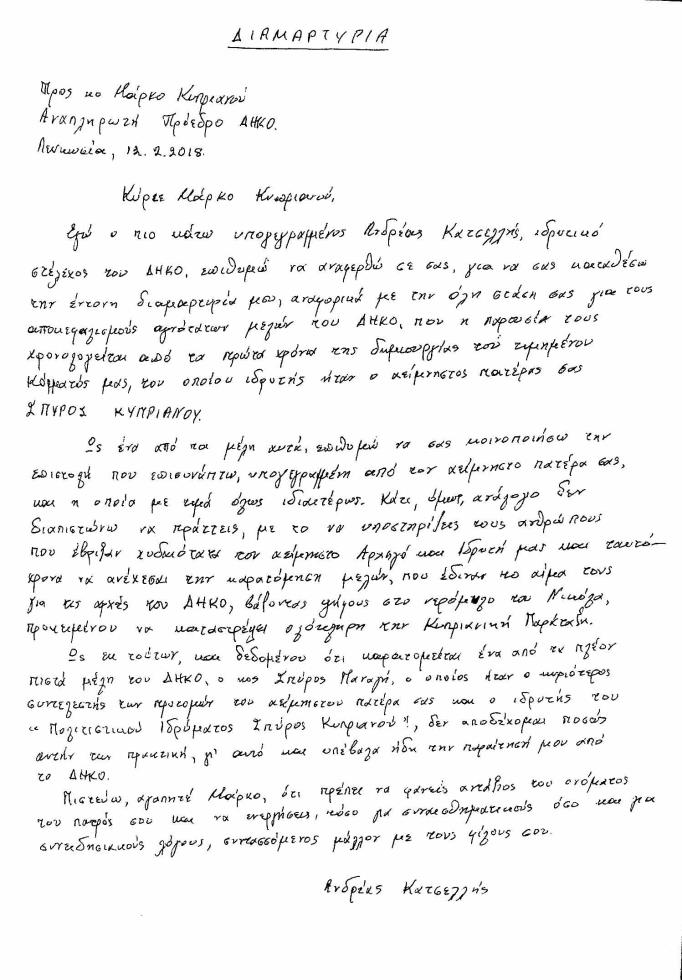 ΔΙΑΜΑΡΤΥΡΙΑ
Προς κο Μάρκο Κυπριανού
Αναπληρωτή Πρόεδρο ΔΗΚΟ.
Λευκωσία, 12.2.2018.
Κύριε Μάρκο Κυπριανού,
Εγώ ο πιο κάτω υπογεγραμμένος Ανδρέας Κατσελλής, ιδρυτικό
στέλεχος του ΔΗΚΟ, επιθυμώ να αναφερθώ σε σας, για να σας καταθέσω
την έντονη διαμαρτυρία μου, αναφορικά με την όλη στάση σας για τους
αποκεφαλισμούς αγνότατων μελών του ΔΗΚΟ, που η παρουσία τους
χρονολογείται από τα πρώτα χρόνια της δημιουργίας του τιμημένου
Κόμματός μας, του οποίου ιδρυτής ήταν ο αείμνηστος πατέρας σας
ΣΠΥΡΟΣ ΚΥΠΡΙΑΝΟΥ.
Ως ένα από τα μέλη αυτά, επιθυμώ να σας κοινοποιήσω την
επιστολή που επισυνάπτω, υπογεγραμμένη από τον αείμνηστο πατέρα σας,
και η οποία με τιμά όλως ιδιαιτέρως. Κάτι, όμως, ανάλογο δεν
διαπιστώνω να πράττεις, με το να υποστηρίζεις τους ανθρώπους
που έβριζαν χυδαιότατα τον αείμνηστο Αρχηγό και Ιδρυτή μας και ταυτό-
χρονα να ανέχεσαι την καρατόμηση μελών, που έδιναν το αίμα τους
για τις αρχές του ΔΗΚΟ, βάζοντας ψήφους στο νερόμυλο του Νικόλα,
προκειμένου να καταστρέψει ολότελα την Κυπριανική Παράταξη.
Ως εκ τούτων, και δεδομένου ότι καρατομείται ένα από τα πλέον
πιστά μέλη του ΔΗΚΟ, ο κος Σπύρος Παναγή, ο οποίος ήταν ο κυριότερος
συντελεστής των προτομών του αείμνηστου πατέρα σας και ο ιδρυτής του
« Πολιτιστικού Ιδρύματος Σπύρος Κυπριανού", δεν αποδέχομαι ποσώς
αυτήν την πρακτική, γι' αυτό και υπέβαλα ήδη την παραίτησή μου από
το ΔΗΚΟ.
Πιστεύω, αγαπητέ Μάρκο, ότι πρέπει να φανείς αντάξιος του ονόματος
του πατρός σου και να ενεργήσεις, τόσο για συναισθηματικούς όσο και για
συνειδησιακούς λόγους, συντασσόμενος μάλλον με τους φίλους σου.
Ανδρέας Κατσελλής